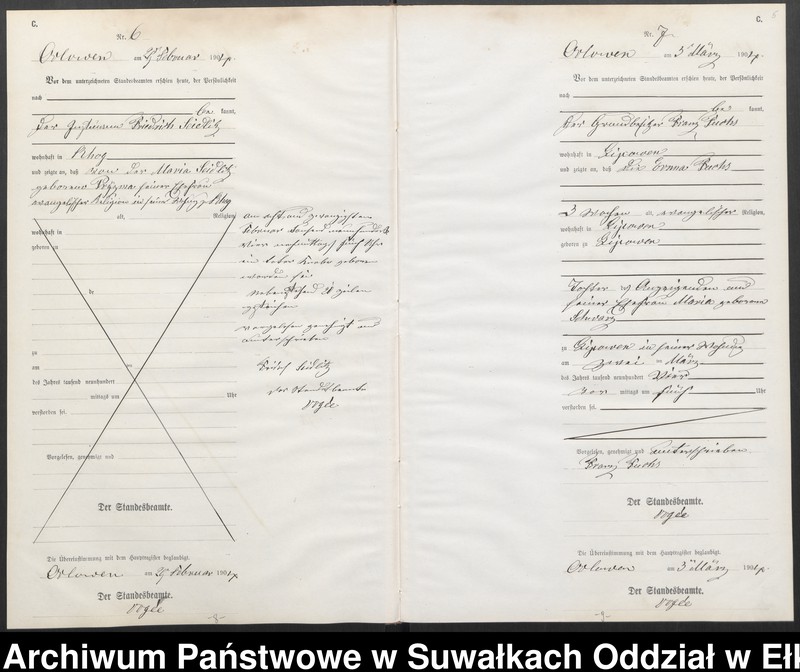 C.
Nr. 6
Orlowen am 29 Februar 1904.
Vor dem unterzeichneten Standesbeamten erschien heute, der Persönlichkeit
nach
be kannt,
der Instmann Friedrich Seidlitz
wohnhaft in Rhog
und zeigte an, daß von der Maria Seidlitz
geborene seiner Ehefrau
evangelischer Religion in seiner Wohnung zu Rhog
alt, Religion,
wohnhaft in
geboren zu
zu
am
des Jahres tausend neunhundert
mittags um Uhr
verstorben sei.
Vorgelesen, genehmigt und
Der Standesbeamte.
am acht und zwanzigsten
Februar tausend neunhundert
vier nachmittags fünf Uhr
ein todter Knabe geboren
worden sei
Nebenstehend Zeilen
gestrichen
vorgelesen genehmigt und
unterschrieben
Seidlitz
der Standesbeamte
Die Übereinstimmung mit dem Hauptregister beglaubigt.
Orlowen am 29 Februar 1904
Der Standesbeamte.
-8-
C.
Nr. 7
Orlowen am 3 März 1904.
Vor dem unterzeichneten Standesbeamten erschien heute, der Persönlichkeit
nach
be kannt,
der Grundbesitzer Franz Fuchs
wohnhaft in Lipowen
und zeigte an, daß die Emma Fuchs
3 Wochen evangelischer Religion,
wohnhaft in Lipowen
geboren zu Lipowen
Tochter des Anzeigenden und
seiner Ehefrau Maria geborene
Schwarz
zu Lipowen in seiner Wohnung
am zwei März
des Jahres tausend neunhundert vier
vor mittags um fünf Uhr
verstorben sei.
Vorgelesen, genehmigt und unterschrieben
Franz Fuchs
Der Standesbeamte.
Die Übereinstimmung mit dem Hauptregister beglaubigt.
Orlowen am 3 März 1904.
Der Standesbeamte.
-9-
Archiwum Państwowe w Suwałkach Oddział w Eł